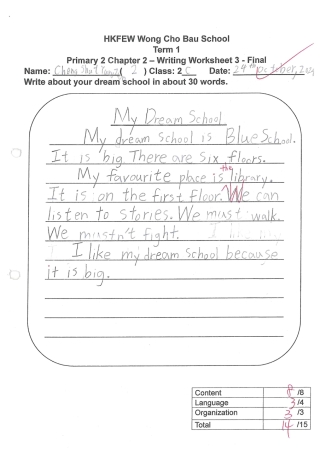 HKFEW Wong Cho Bau School
Term 1
Primary 2 Chapter 2 – Writing Worksheet 3 - Final
Name: ( 2 ) Class: 2 C Date: 24th October,
Write about your dream school in about 30 words.
My Dream School
My dream school is Blue School.
It is big. There are six floors.
the
My favourite place is library.
It is on the first floor. We can
listen to stories. We must walk.
We mustn't fight.
I like my dream school because
it is big.
Content 8 /8
Language 3 /4
Organization 3 /3
Total 14 /15